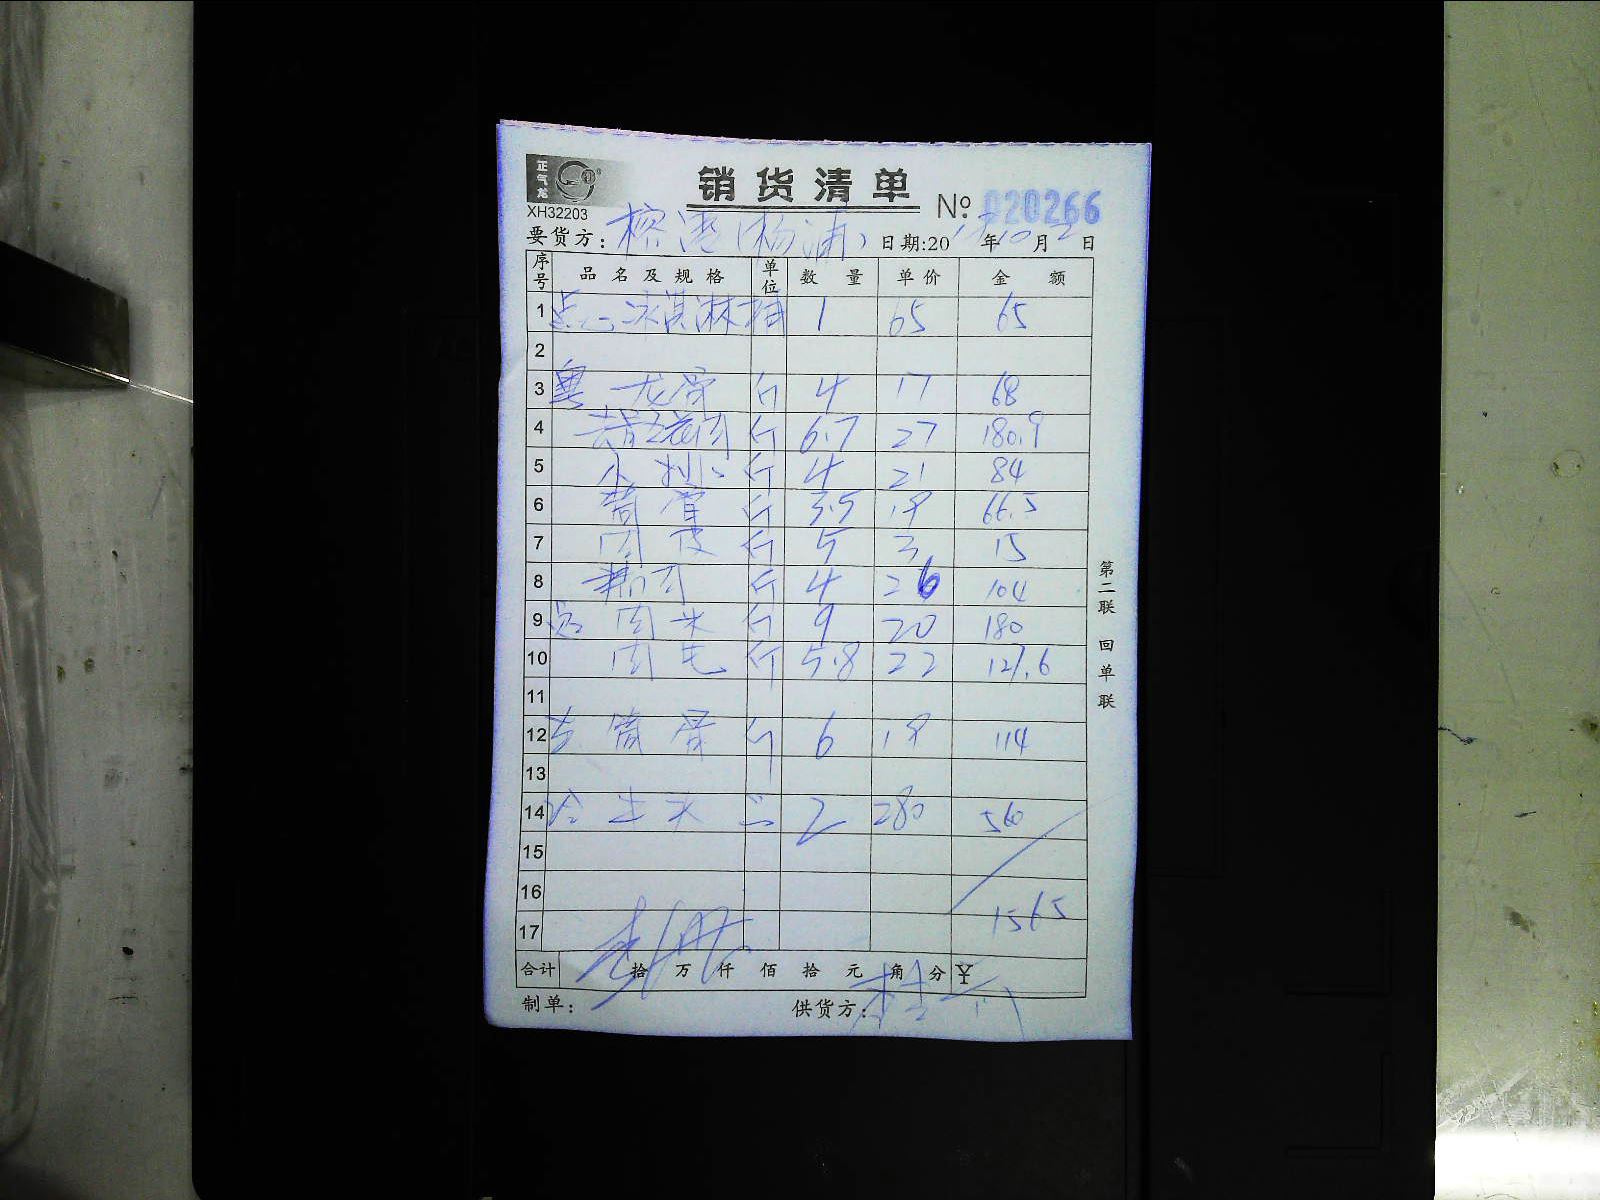 正气龙
XH32203
销货清单
№ 020266
要货方: 榕港(杨浦) 日期:20 年10月2日
序号 品名及规格 单位 数量 单价 金额
1 点心 冰淇淋 桶 1 65 65
2
3 粤 龙骨 斤 4 17 68
4 去骨五花肉 斤 6.7 27 180.9
5 小排 斤 4 21 84
6 筒骨 斤 3.5 19 66.5
7 肉皮 斤 5 3 15
8 斤 4 26 104
9 点 肉米 斤 9 20 180
10 肉 斤 5.8 22 127.6
11
12 筒骨 斤 6 19 114
13
14 2 280 560
15
16
1565
17
合计 拾 万 仟 佰 拾 元 角 分 ¥
制单: 供货方:
第二联 回单联